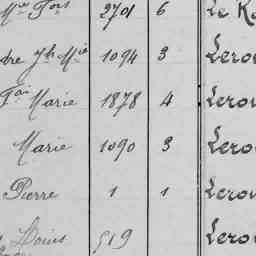 Mie Fois 2701 6 Le
dre Jh Mie 1094 3 Lero
Marie 1878 4 Lerou
Marie 1090 3 Lero
Pierre 1 1 Lerou
Louis 519 Lero